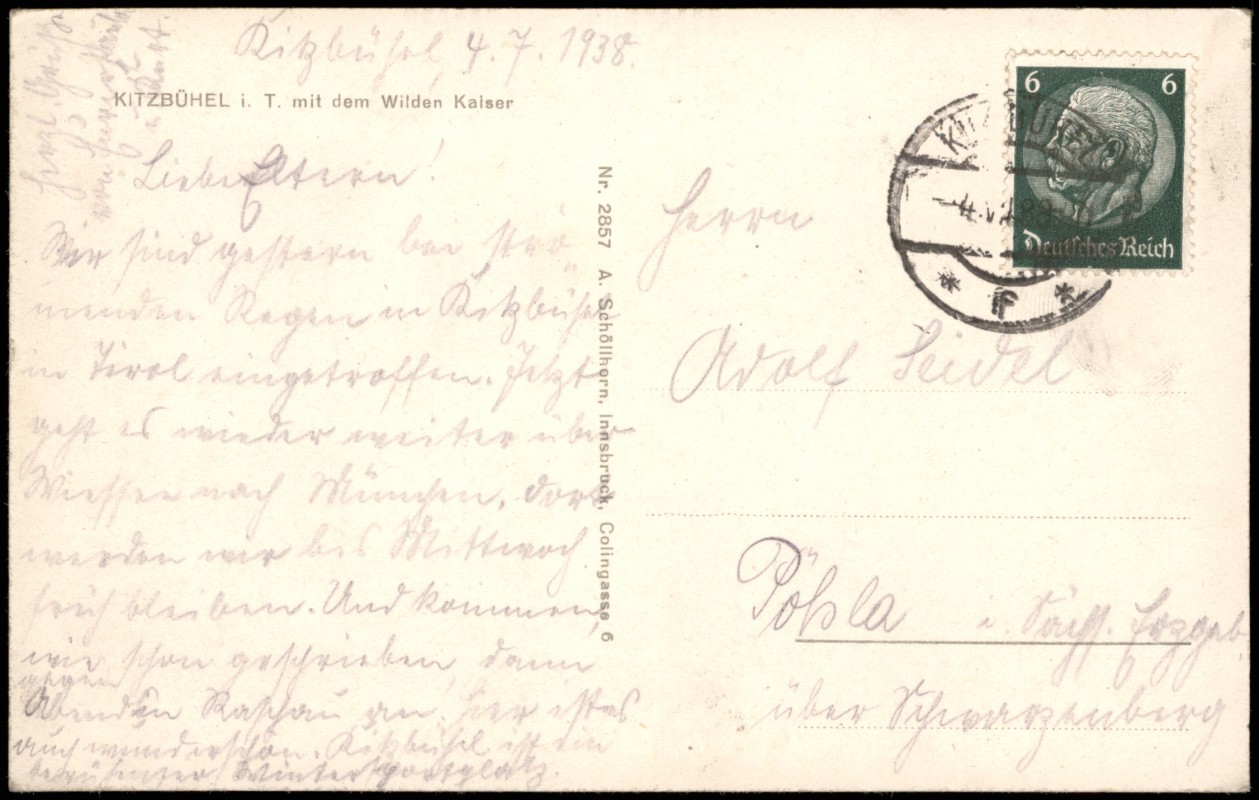 Kitzbühel, 4.7.1938.
KITZBÜHEL i. T. mit dem Wilden Kaiser
Liebe Eltern!
Wir sind gestern bei strö-
menden Regen in Kitzbühel
in Tirol eingetroffen. Jetzt
geht es wieder weiter über
Wiessee nach München, dort
werden wir bis Mittwoch
früh bleiben. Und kommen,
wie schon geschrieben, dann
gegen
Abend in Raschau an. Hier ist es
auch wunderschön. Kitzbühel ist ein
berühmter Wintersportplatz.
Herzl. Grüße
von
u.
Nr. 2857 A. Schöllhorn, Innsbruck, Colingasse 6
6 6
Deutsches Reich
KITZBÜHEL
Herrn
Adolf Seidel
Pöhla i. Sächs. Erzgeb.
über Schwarzenberg